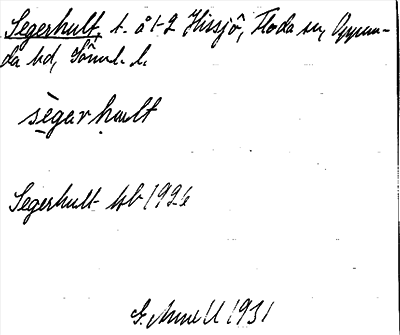 Segerhult, t. å 1-2 Hissjö, Floda sn, Oppun-
da hd, Söml. l.
sègarhult
Segerhult hb 1926
G. Amnell 1931